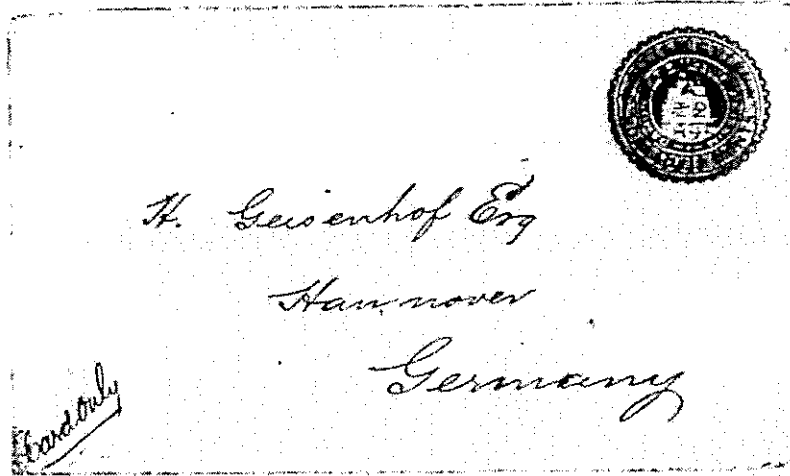 H. Geisenhof Esq
Hannover
Germany
Card only